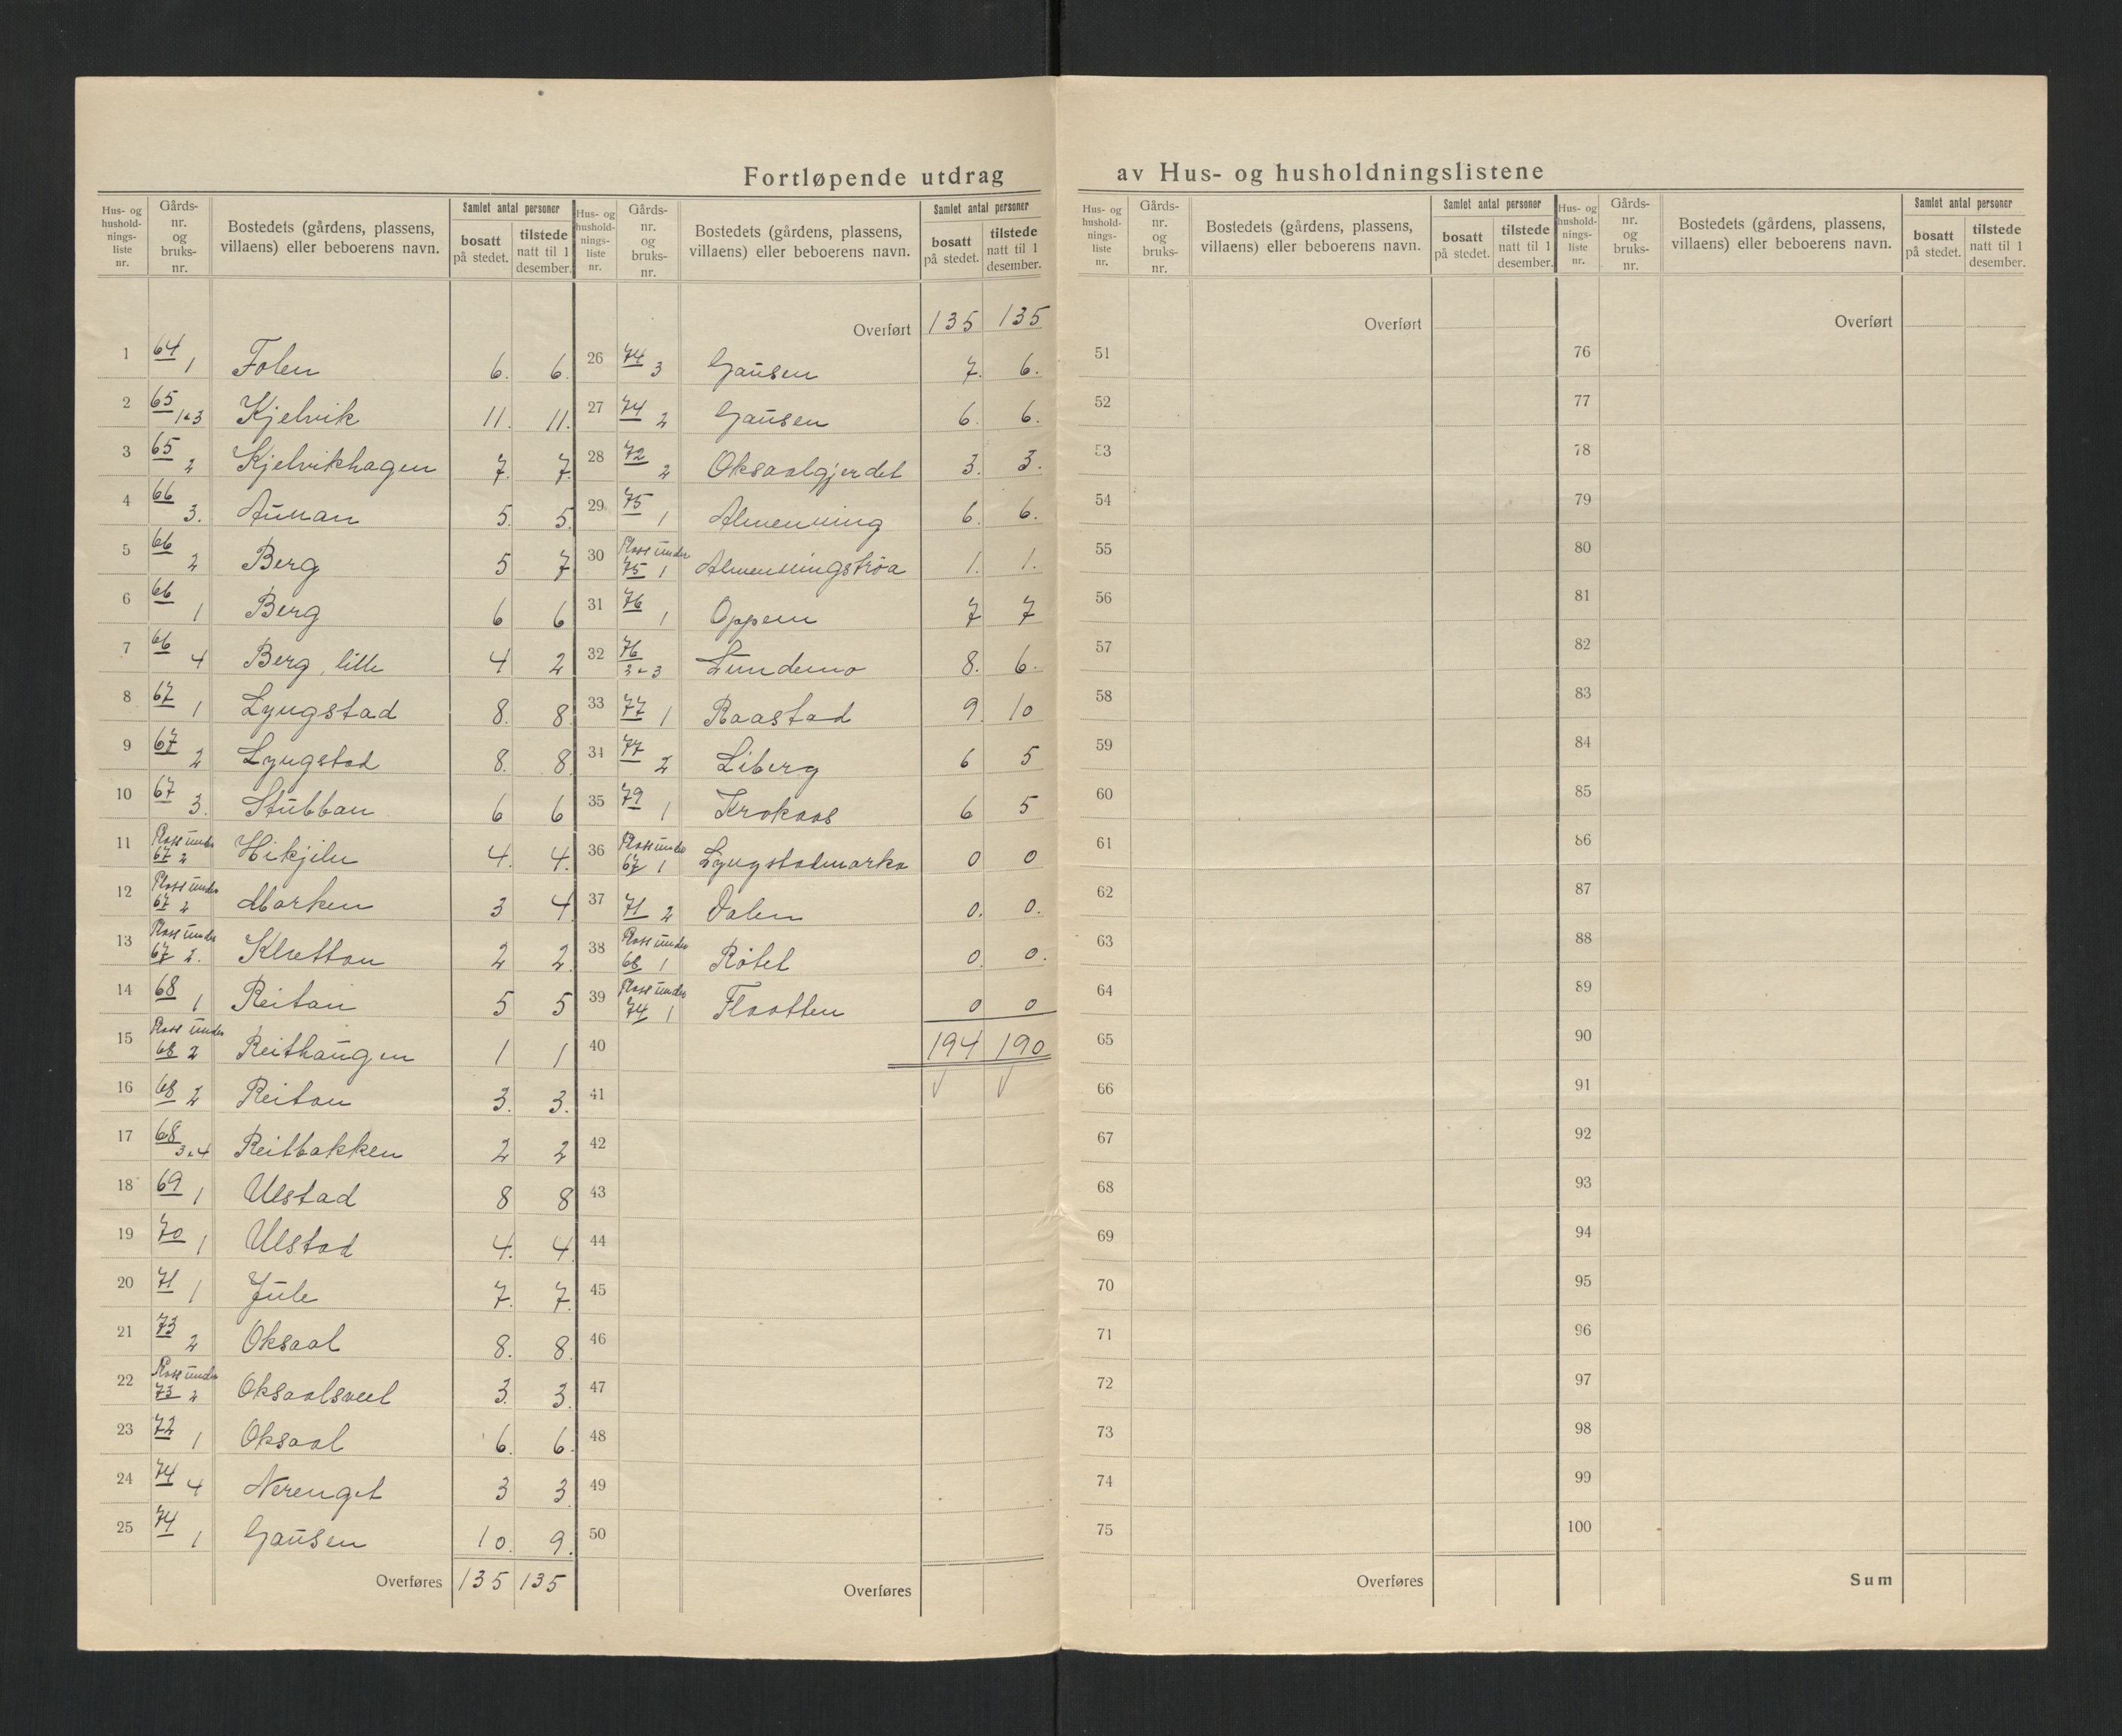 Fortløpende utdrag av Hus- og husholdningslistene
Hus- og hushold- nings- liste nr. | Gårds- nr. og bruks- nr. | Bostedets (gårdens, plassens, villaens) eller beboerens navn. | Samlet antal personer | bosatt på stedet. | tilstede natt til 1 desember.
1 64 1 Folen 6. 6.
2 65 1 & 3 Kjelvik 11. 11.
3 65 2 Kjelvikhagen 7. 7.
4 66 3. Aunan 5. 5.
5 66 2 Berg 5 7
6 66 1 Berg 6 6
7 66 4 Berg, lille 4 2
8 67 1 Lyngstad 8. 8.
9 67 2 Lyngstad 8. 8.
10 67 3. Stubban 6 6
11 Plass under 67 2 4. 4.
12 Plass under 67 2 Marken 3 4
13 Plass under 67 2. Kletton 2 2.
14 68 1 Reitan 5 5
15 Plass under 68 2 Reithaugen 1 1
16 68 2 Reitan 3. 3.
17 68 3 & 4 Reitbakken 2 2
18 69 1 Ulstad 8 8
19 70 1 Ulstad 4. 4.
20 71 1 Jule 7. 7.
21 73 2 Oksaal 8. 8.
22 Plass under 73 2 Oksaalsveet 3. 3.
23 72 1 Oksaal 6. 6.
24 74 4 Nerenget 3 3
25 74 1 Gausen 10. 9.
Overføres 135 135
Hus- og hushold- nings- liste nr. | Gårds- nr. og bruks- nr. | Bostedets (gårdens, plassens, villaens) eller beboerens navn. | Samlet antal personer | bosatt på stedet. | tilstede natt til 1 desember.
Overført 135 135
26 74 3 Gausen 7. 6.
27 74 2 Gausen 6. 6.
28 72 2 Oksaalgjerdet 3. 3.
29 75 1 Almenning 6. 6.
30 Plass under 75 1 Almenningstrøa 1. 1.
31 76 1 Oppem 7 7
32 76 2 & 3 Lundemo 8. 6.
33 77 1 Raastad 9. 10
34 77 2 Liberg 6 5
35 79 1 Krokaas 6 5
36 Plass under 67 1 Lyngstadmarka 0 0
37 71 2 Dalen 0. 0.
38 Plass under 68 1 Røtet 0. 0.
39 Plass under 74 1 Flaatten 0 0
40 194 190
41
42
43
44
45
46
47
48
49
50
Overføres
Hus- og hushold- nings- liste nr. | Gårds- nr. og bruks- nr. | Bostedets (gårdens, plassens, villaens) eller beboerens navn. | Samlet antal personer | bosatt på stedet. | tilstede natt til 1 desember.
Overført
51
52
53
54
55
56
57
58
59
60
61
62
63
64
65
66
67
68
69
70
71
72
73
74
75
Overføres
Hus- og hushold- nings- liste nr. | Gårds- nr. og bruks- nr. | Bostedets (gårdens, plassens, villaens) eller beboerens navn. | Samlet antal personer | bosatt på stedet. | tilstede natt til 1 desember.
Overført
76
77
78
79
80
81
82
83
84
85
86
87
88
89
90
91
92
93
94
95
96
97
98
99
100
Sum